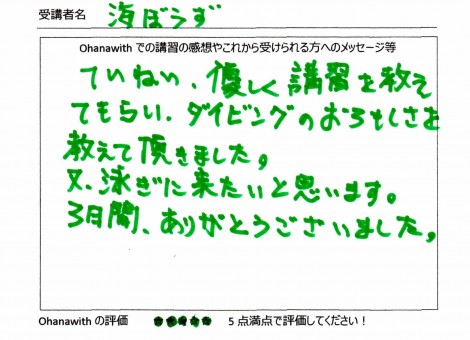 受講者名 海ぼうず
Ohanawith での講習の感想やこれから受けられる方へのメッセージ等
ていねい、優しく講習を教え
てもらい、ダイビングのおろもしさを
教えて頂きました。
又、泳ぎに来たいと思います。
3日間、ありがとうございました。
Ohanawith の評価 ●●●●● 5 点満点で評価してください！